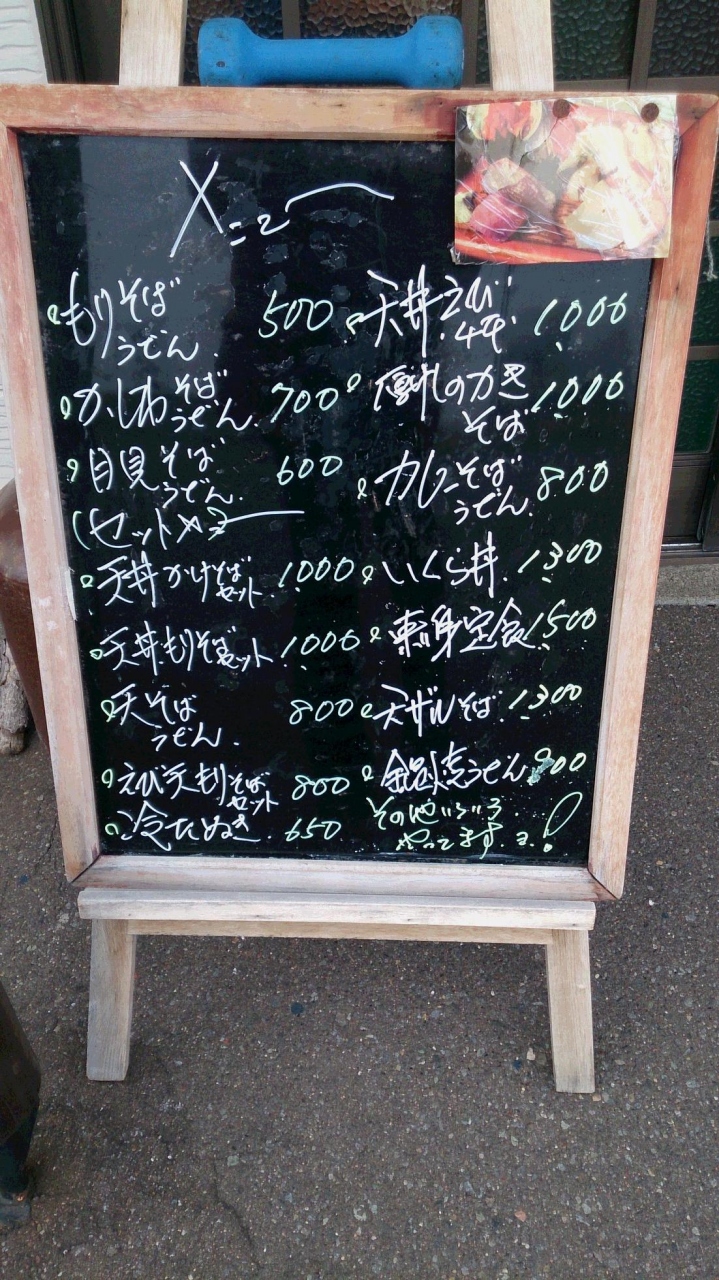 メニュー
もりそば
うどん. 500
かしわそば
うどん. 700
月見そば
うどん. 600
(セットメニュー
天丼かけそば
セット 1,000
天丼もりそば
セット 1,000
天そば
うどん. 800
えび天もりそば
セット 800
冷たぬき 650
天丼.えび
4本 1,000
厚岸のカキ
そば 1,000
カレーそば
うどん 800
いくら丼. 1,300
刺身定食 1,500
天ザルそば 1,300
鍋焼うどん 900
その他いろいろ
やってますヨ!